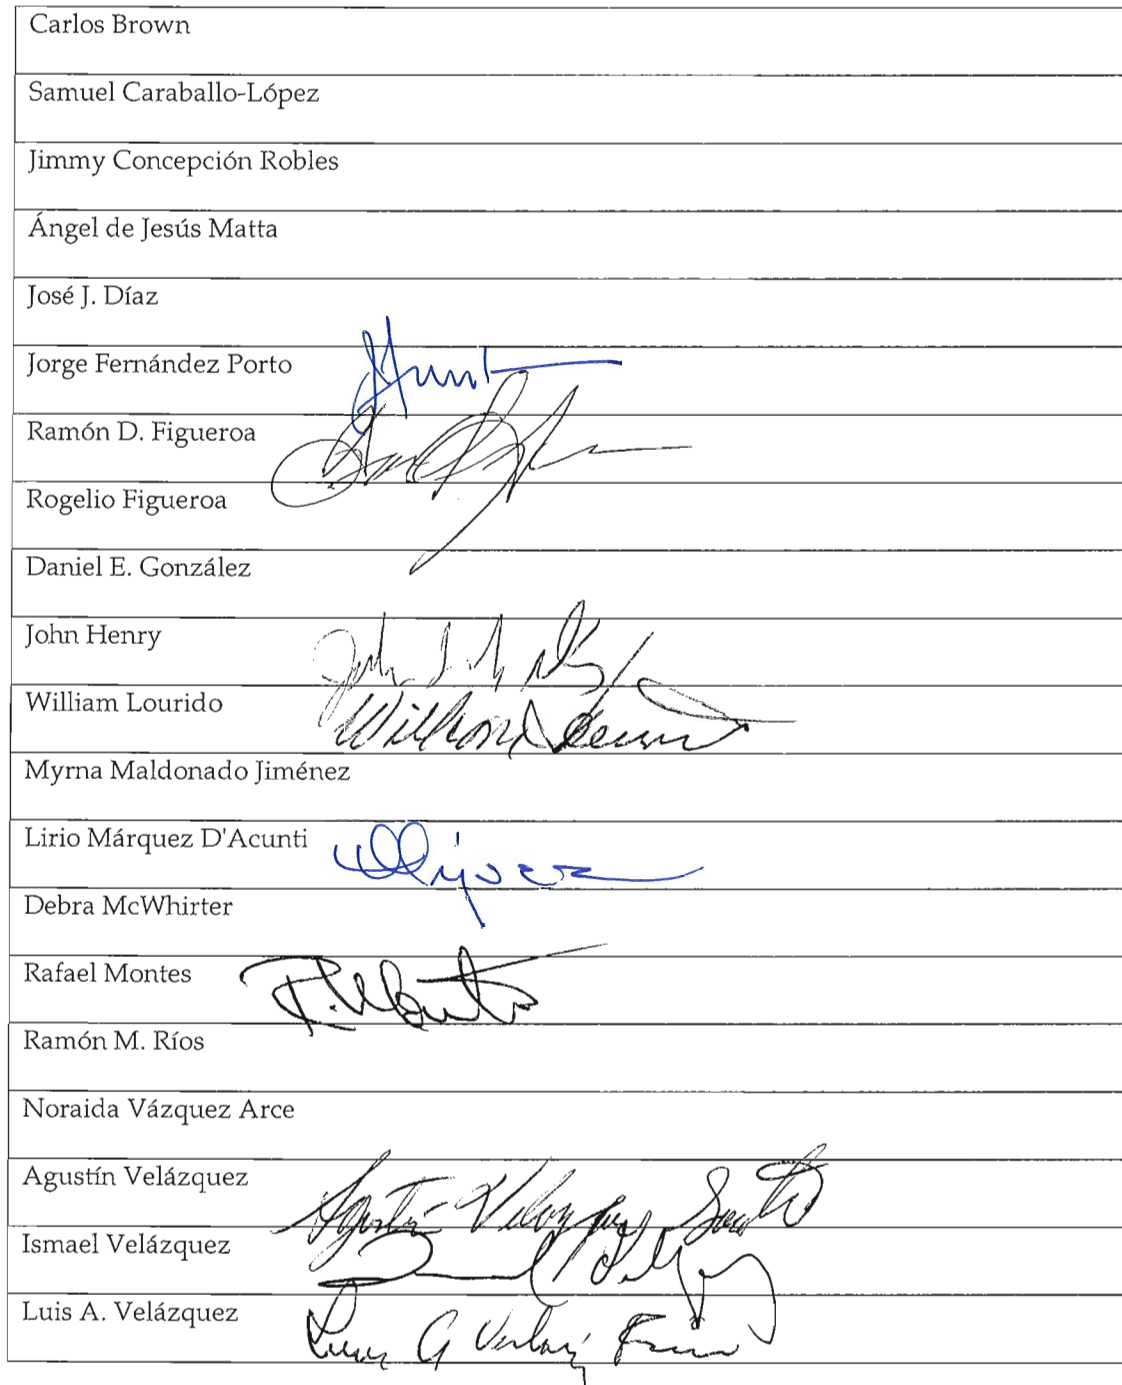 Carlos Brown
Samuel Caraballo-López
Jimmy Concepción Robles
Ángel de Jesús Matta
José J. Díaz
Jorge Fernández Porto
Ramón D. Figueroa
Rogelio Figueroa
Daniel E. González
John Henry
William Lourido
Myrna Maldonado Jiménez
Lirio Márquez D'Acunti
Debra McWhirter
Rafael Montes
Ramón M. Ríos
Noraida Vázquez Arce
Agustín Velázquez
Ismael Velázquez
Luis A. Velázquez